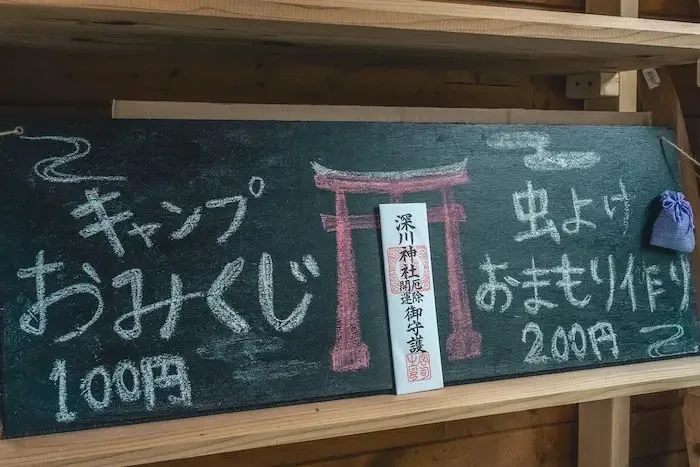 キャンプ
おみくじ
100円
深川神社
厄除
開運
御守護
虫よけ
おまもり作り
200円